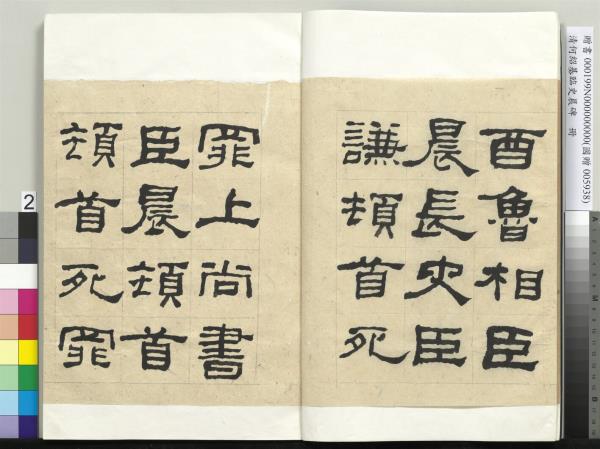 酉魯相臣
晨長史臣
謙頓首死
罪上尚書
臣晨頓首
頓首死罪
贈書 000199N000000000(國贈 005938)
清何紹基臨史晨碑 冊
2
A
B